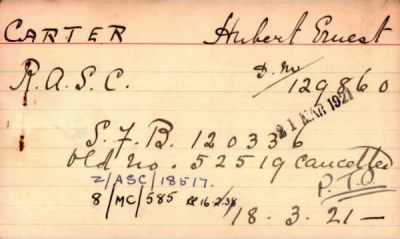 CARTER Hubert Ernest
R.A.S.C. D. No/129860
21 MAR 1921
S.F.B. 120336
Old No. 52519 cancelled
2/ASC/18517. P.T.O.
8/MC/585 16.2.38
18.3.21—